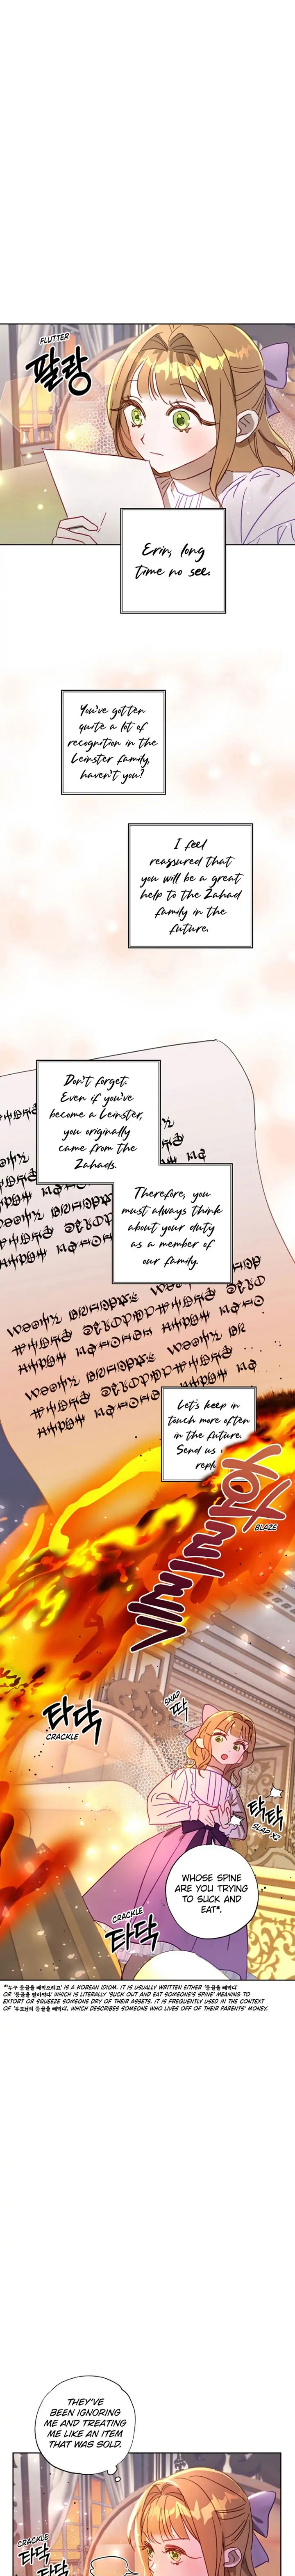 FLUTTER
팔랑
Erin, long
time no see.
You've gotten
quite a lot of
recognition in the
Leinster family,
haven't you?
I feel
reassured that
you will be a great
help to the Zahad
family in the
future.
Don't forget.
Even if you've
become a Leinster,
you originally
came from the
Zahads.
Therefore, you
must always think
about your duty
as a member of
our family.
Let's keep in
touch more often
in the future.
Send us
repl
BLAZE
타닥
CRACKLE
SNAP
딱
탁탁
SLAP X2
WHOSE SPINE
ARE YOU TRYING
TO SUCK AND
EAT*.
CRACKLE
타닥
*'누구 등골을 빼먹으려고' IS A KOREAN IDIOM. IT IS USUALLY WRITTEN EITHER '등골을 빼먹다'
OR '등골을 빨아먹다' WHICH IS LITERALLY 'SUCK OUT AND EAT SOMEONE'S SPINE' MEANING TO
EXTORT OR SQUEEZE SOMEONE DRY OF THEIR ASSETS. IT IS FREQUENTLY USED IN THE CONTEXT
OF '부모님의 등골을 빼먹다', WHICH DESCRIBES SOMEONE WHO LIVES OFF OF THEIR PARENTS' MONEY.
THEY'VE
BEEN IGNORING
ME AND TREATING
ME LIKE AN ITEM
THAT WAS SOLD.
CRACKLE
타닥